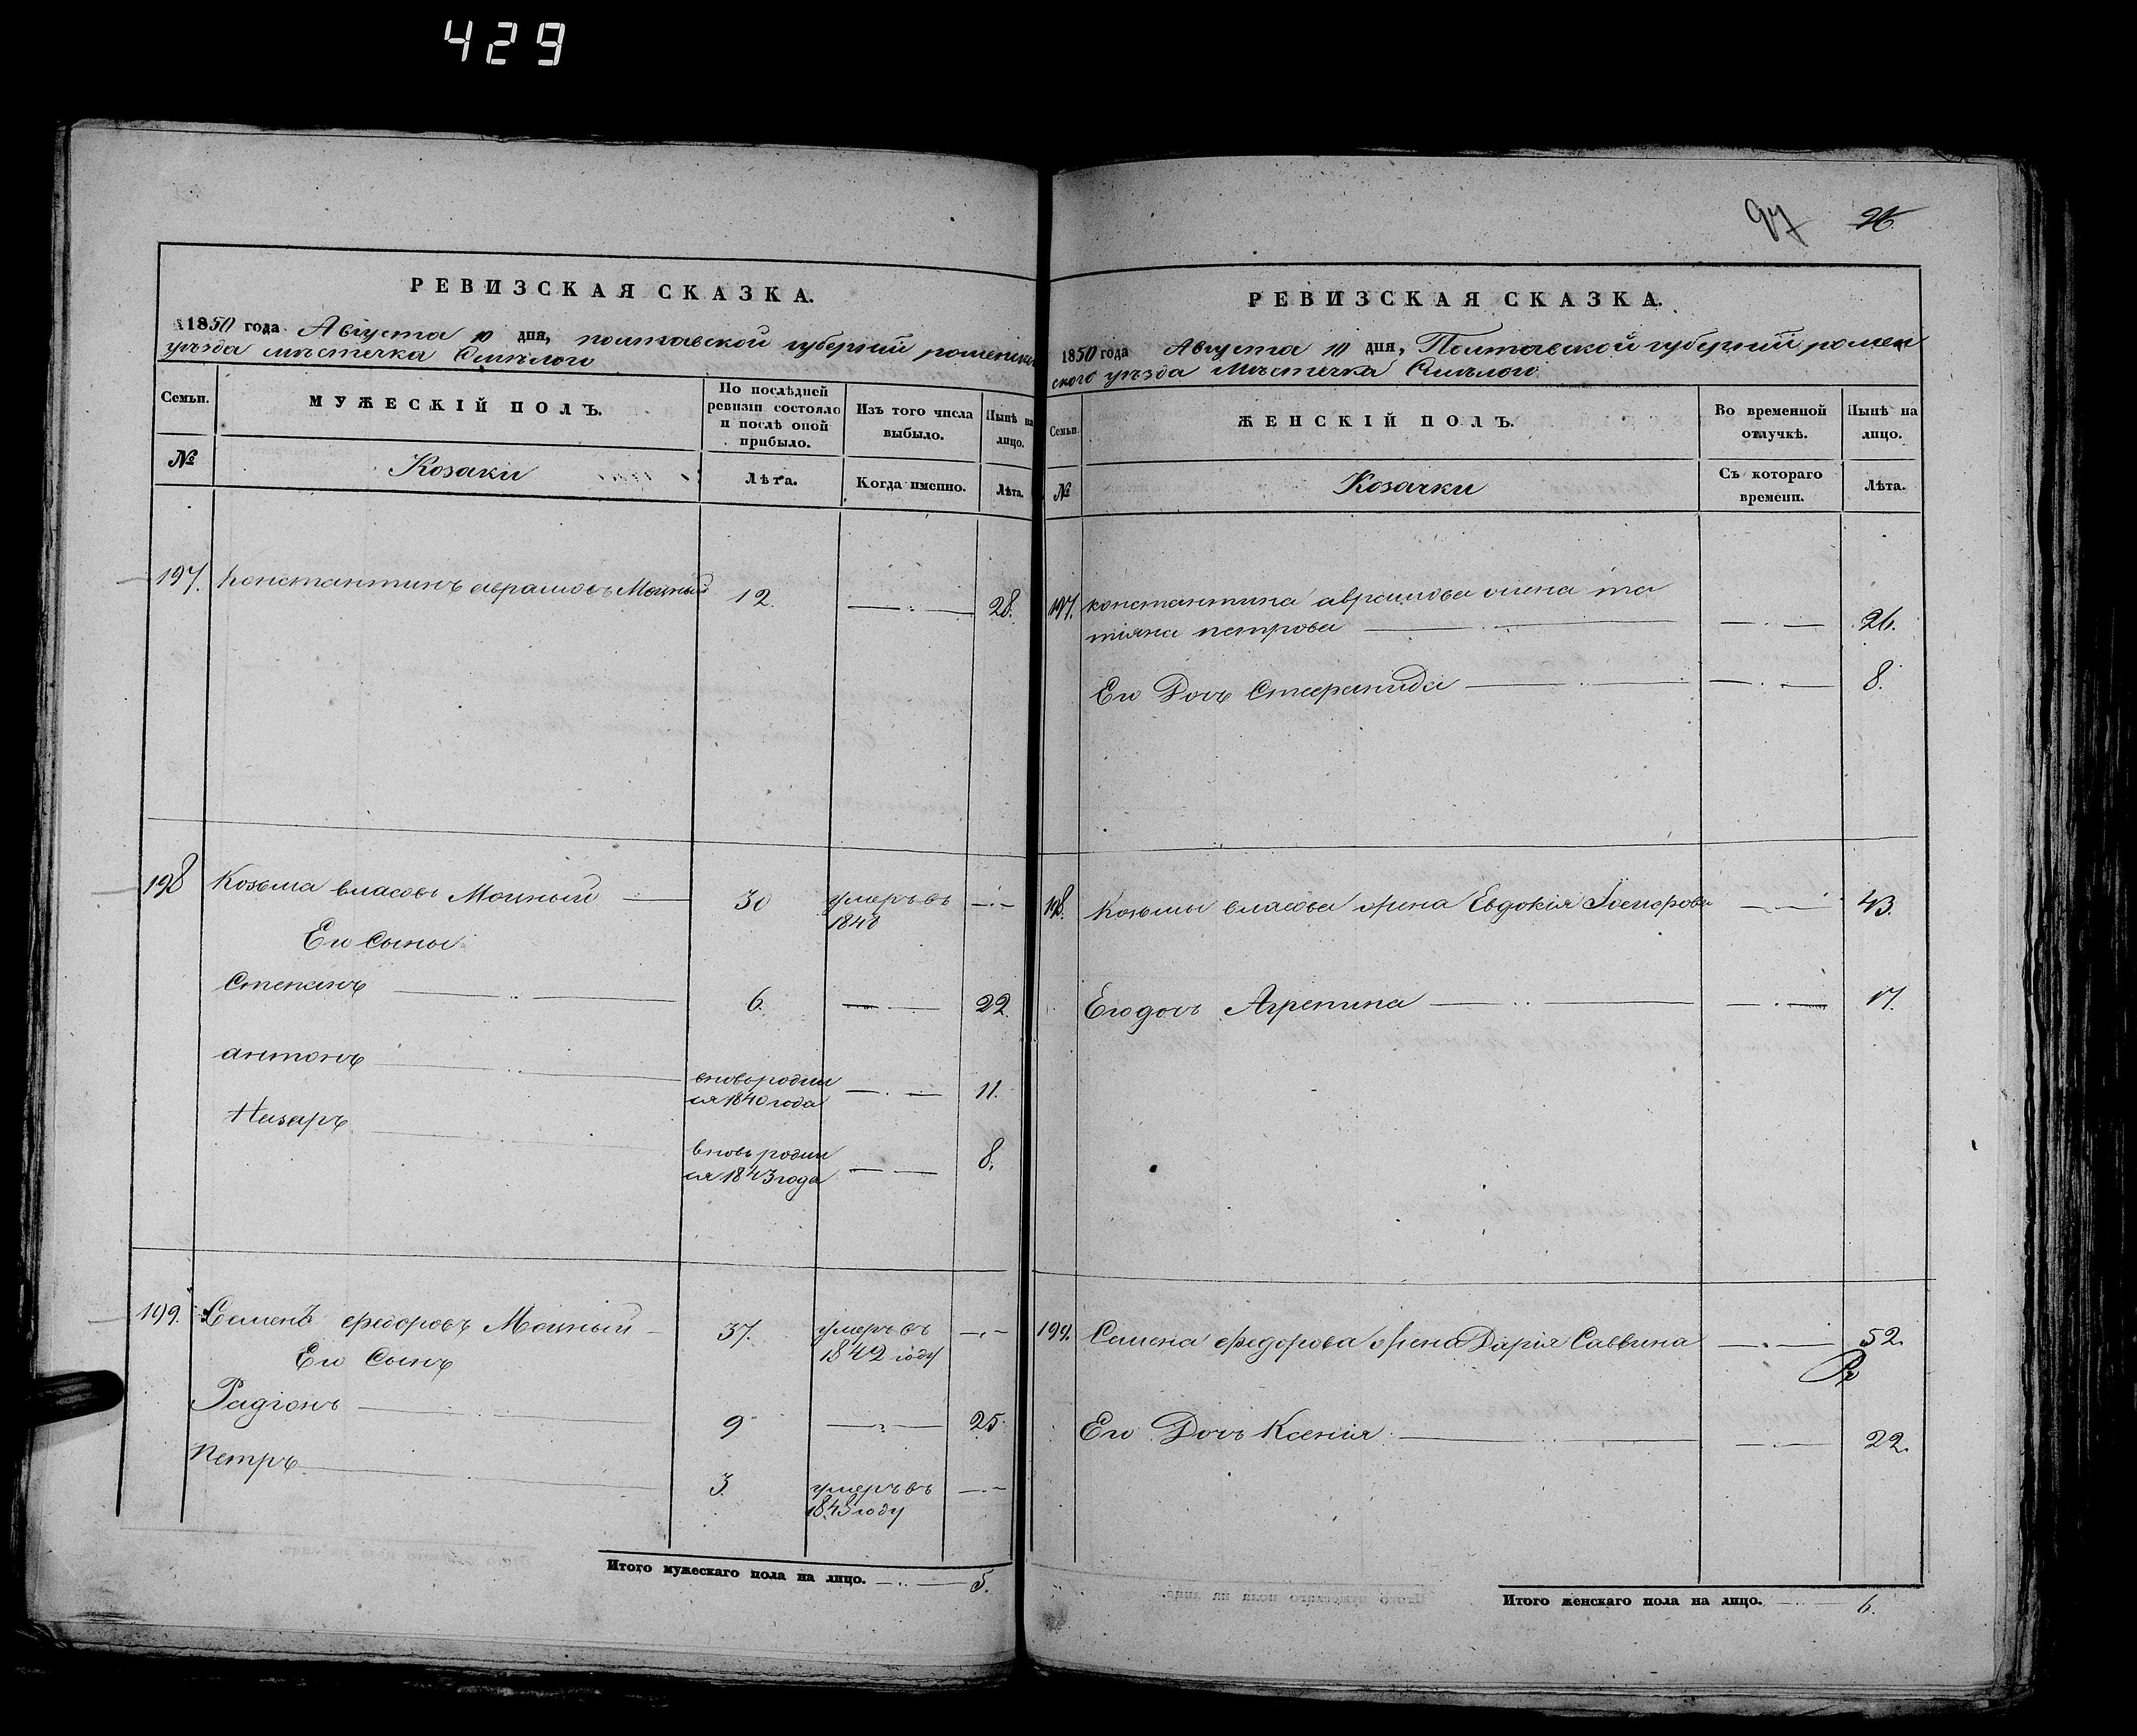 429
РЕВИЗСКАЯ СКАЗКА.
1850 года Августа 10 дня, полтавской губерній роменска
уѣзда мѣстечка Смѣлого
Семьи.
МУЖЕСКІЙ ПОЛЪ.
По послѣдней
ревизіи состояло
и послѣ оной
прибыло.
Изъ того числа
выбыло.
Нынѣ на
лицо.
№
Козаки
Лѣта.
Когда именно.
Лѣта.
197. Константинъ аврамовъ Моцный 12. 28.
198 Козьма власовъ Моцный 30 умеръ въ
1848
Его Сыны
Степанъ 6. 22.
антонъ вновь родил
ся 1840 года 11.
Назаръ вновь родил
ся 1843 года 8.
199. Семенъ федоровъ Моцный 37. умеръ въ
1842 году
Его Сынъ
Радіонъ 9 25.
Петръ 3. умеръ въ
1843 году
Итого мужескаго пола на лицо. 5.
97 96.
РЕВИЗСКАЯ СКАЗКА.
1850 года Августа 10 дня, Полтавской губерній ромен
ского уѣзда Мѣстечка Смѣлого
Семьи.
ЖЕНСКІЙ ПОЛЪ.
Во временной
отлучкѣ.
Нынѣ на
лицо.
№
Козачки
Съ котораго
времени.
Лѣта.
197. константина аврамова жена та
тіяна петрова 26.
Его Дочь Стефанида 8.
198. Козьмы власова жена Евдокія 43.
Его дочь Агрепина 17.
199. Семена федорова жена Дарія Саввина 52.
Его Дочь Ксенія 22.
Итого женскаго пола на лицо. 6.